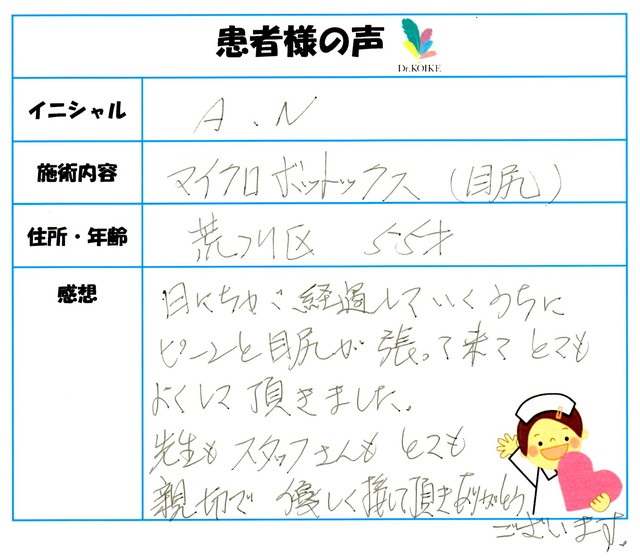 患者様の声
Dr.KOIKE
イニシャル A.N
施術内容 マイクロボットックス(目尻)
住所・年齢 荒川区 55才
感想
日にちが経過していくうちに
ピーンと目尻が張って来てとても
よくして頂きました。
先生もスタッフさんもとても
親切で優しく接して頂きありがとう
ございます。